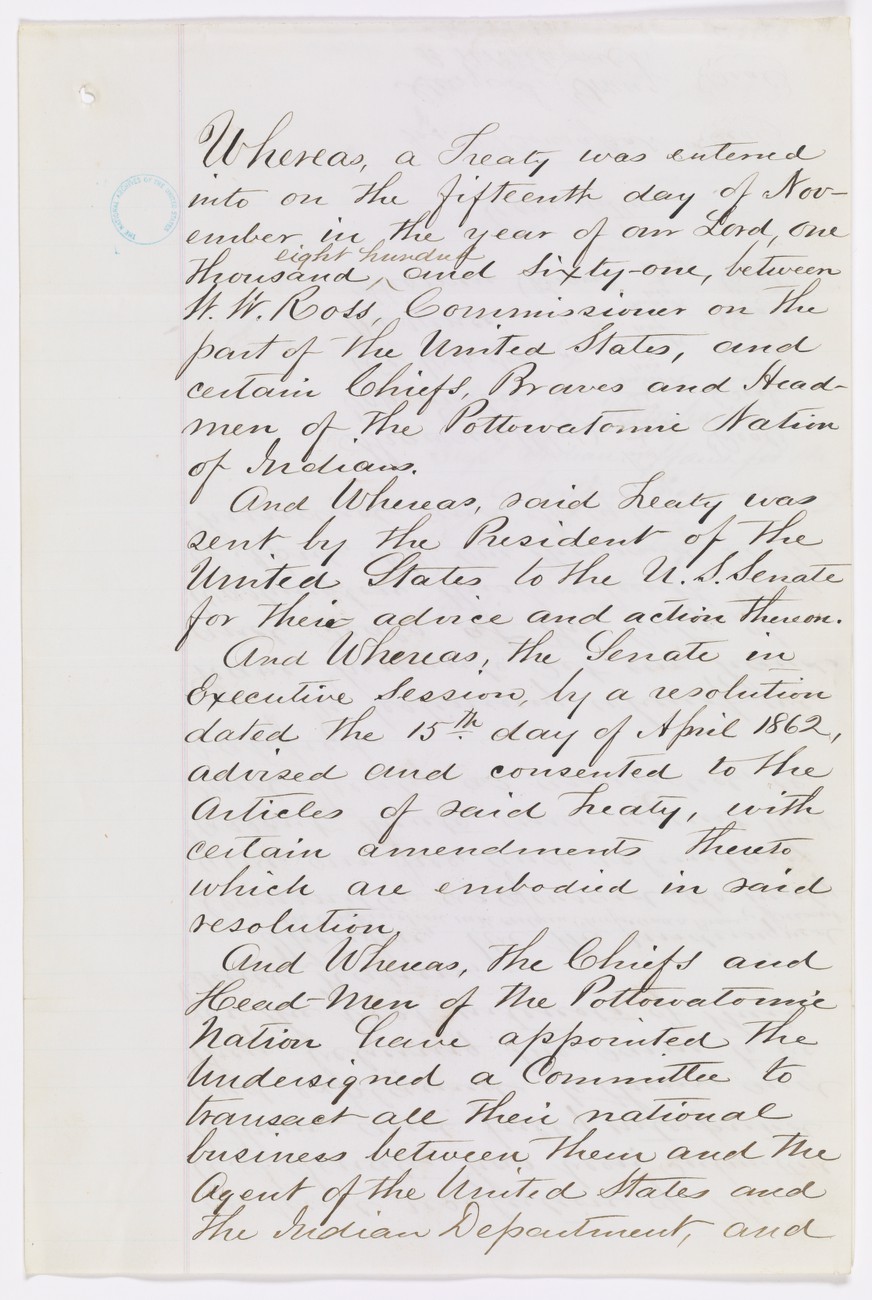 Whereas, a Treaty was entered
into on the fifteenth day of Nov-
ember in the year of our Lord, one
eight hundred
thousand, and sixty-one, between
W. W. Ross, Commissioner on the
part of the United States, and
certain Chiefs, Braves and Head-
men of the Pottowatomie Nation
of Indians.
And Whereas, said Treaty was
sent by the President of the
United States to the U. S. Senate
for their advice and action thereon.
And Whereas, the Senate in
Executive Session, by a resolution
dated the 15th day of April 1862,
advised and consented to the
Articles of said Treaty, with
certain amendments thereto
which are embodied in said
resolution.
And Whereas, the Chiefs and
Head-Men of the Pottowatomie
Nation have appointed the
Undersigned a Committee to
transact all their national
business between them and the
Agent of the United States and
the Indian Department, and
THE NATIONAL ARCHIVES OF THE UNITED STATES